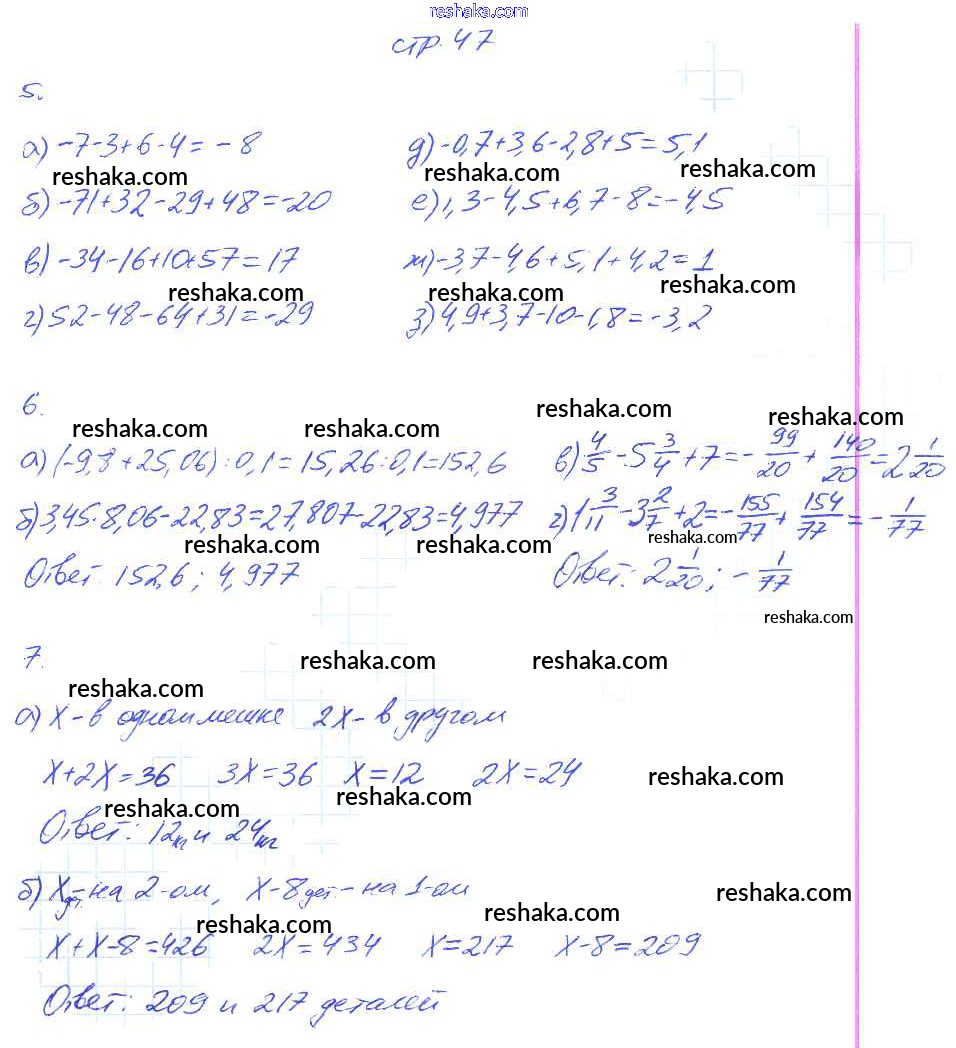 reshaka.com
стр. 47
5.
а) -7-3+6-4= -8
д) -0,7+3,6-2,8+5=5,1
reshaka.com reshaka.com reshaka.com
б) -71+32-29+48=-20
е) 1,3-4,5+6,7-8=-4,5
в) -34-16+10+57=17
ж) -3,7-4,6+5,1+4,2=1
reshaka.com reshaka.com reshaka.com
г) 52-48-64+31=-29
з) 4,9+3,7-10-1,8=-3,2
6.
reshaka.com reshaka.com reshaka.com
а) (-9,8+25,06):0,1=15,26:0,1=152,6
в) 4/5-5 3/4+7=-99/20+140/20=2 1/20
б) 3,45·8,06-22,83=27,807-22,83=4,977
г) 1 3/11-3 2/7+2=-155/77+154/77=-1/77
reshaka.com reshaka.com
Ответ: 152,6; 4,977
Ответ: 2 1/20; -1/77
reshaka.com
7.
reshaka.com reshaka.com
reshaka.com
а) X-в одном мешке 2X-в другом
X+2X=36 3X=36 X=12 2X=24
reshaka.com reshaka.com reshaka.com
Ответ: 12кг и 24кг
б) X дет.-на 2-ом, X-8 дет.-на 1-ом
reshaka.com reshaka.com reshaka.com
X+X-8=426 2X=434 X=217 X-8=209
Ответ: 209 и 217 деталей